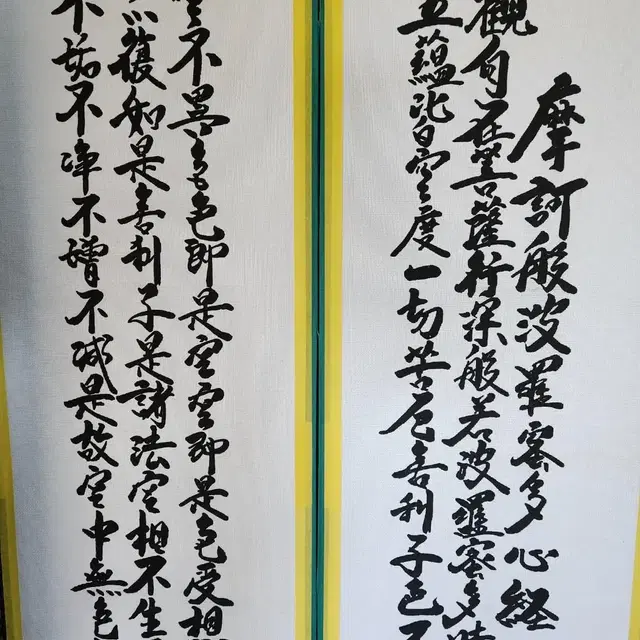 摩訶般波羅蜜多心経
觀自在菩薩行深般若波羅蜜多時
五蘊皆空度一切苦厄舍利子色不
空不異色色即是空空即是色受想
亦復如是舍利子是諸法空相不生
不垢不净不增不减是故空中無色